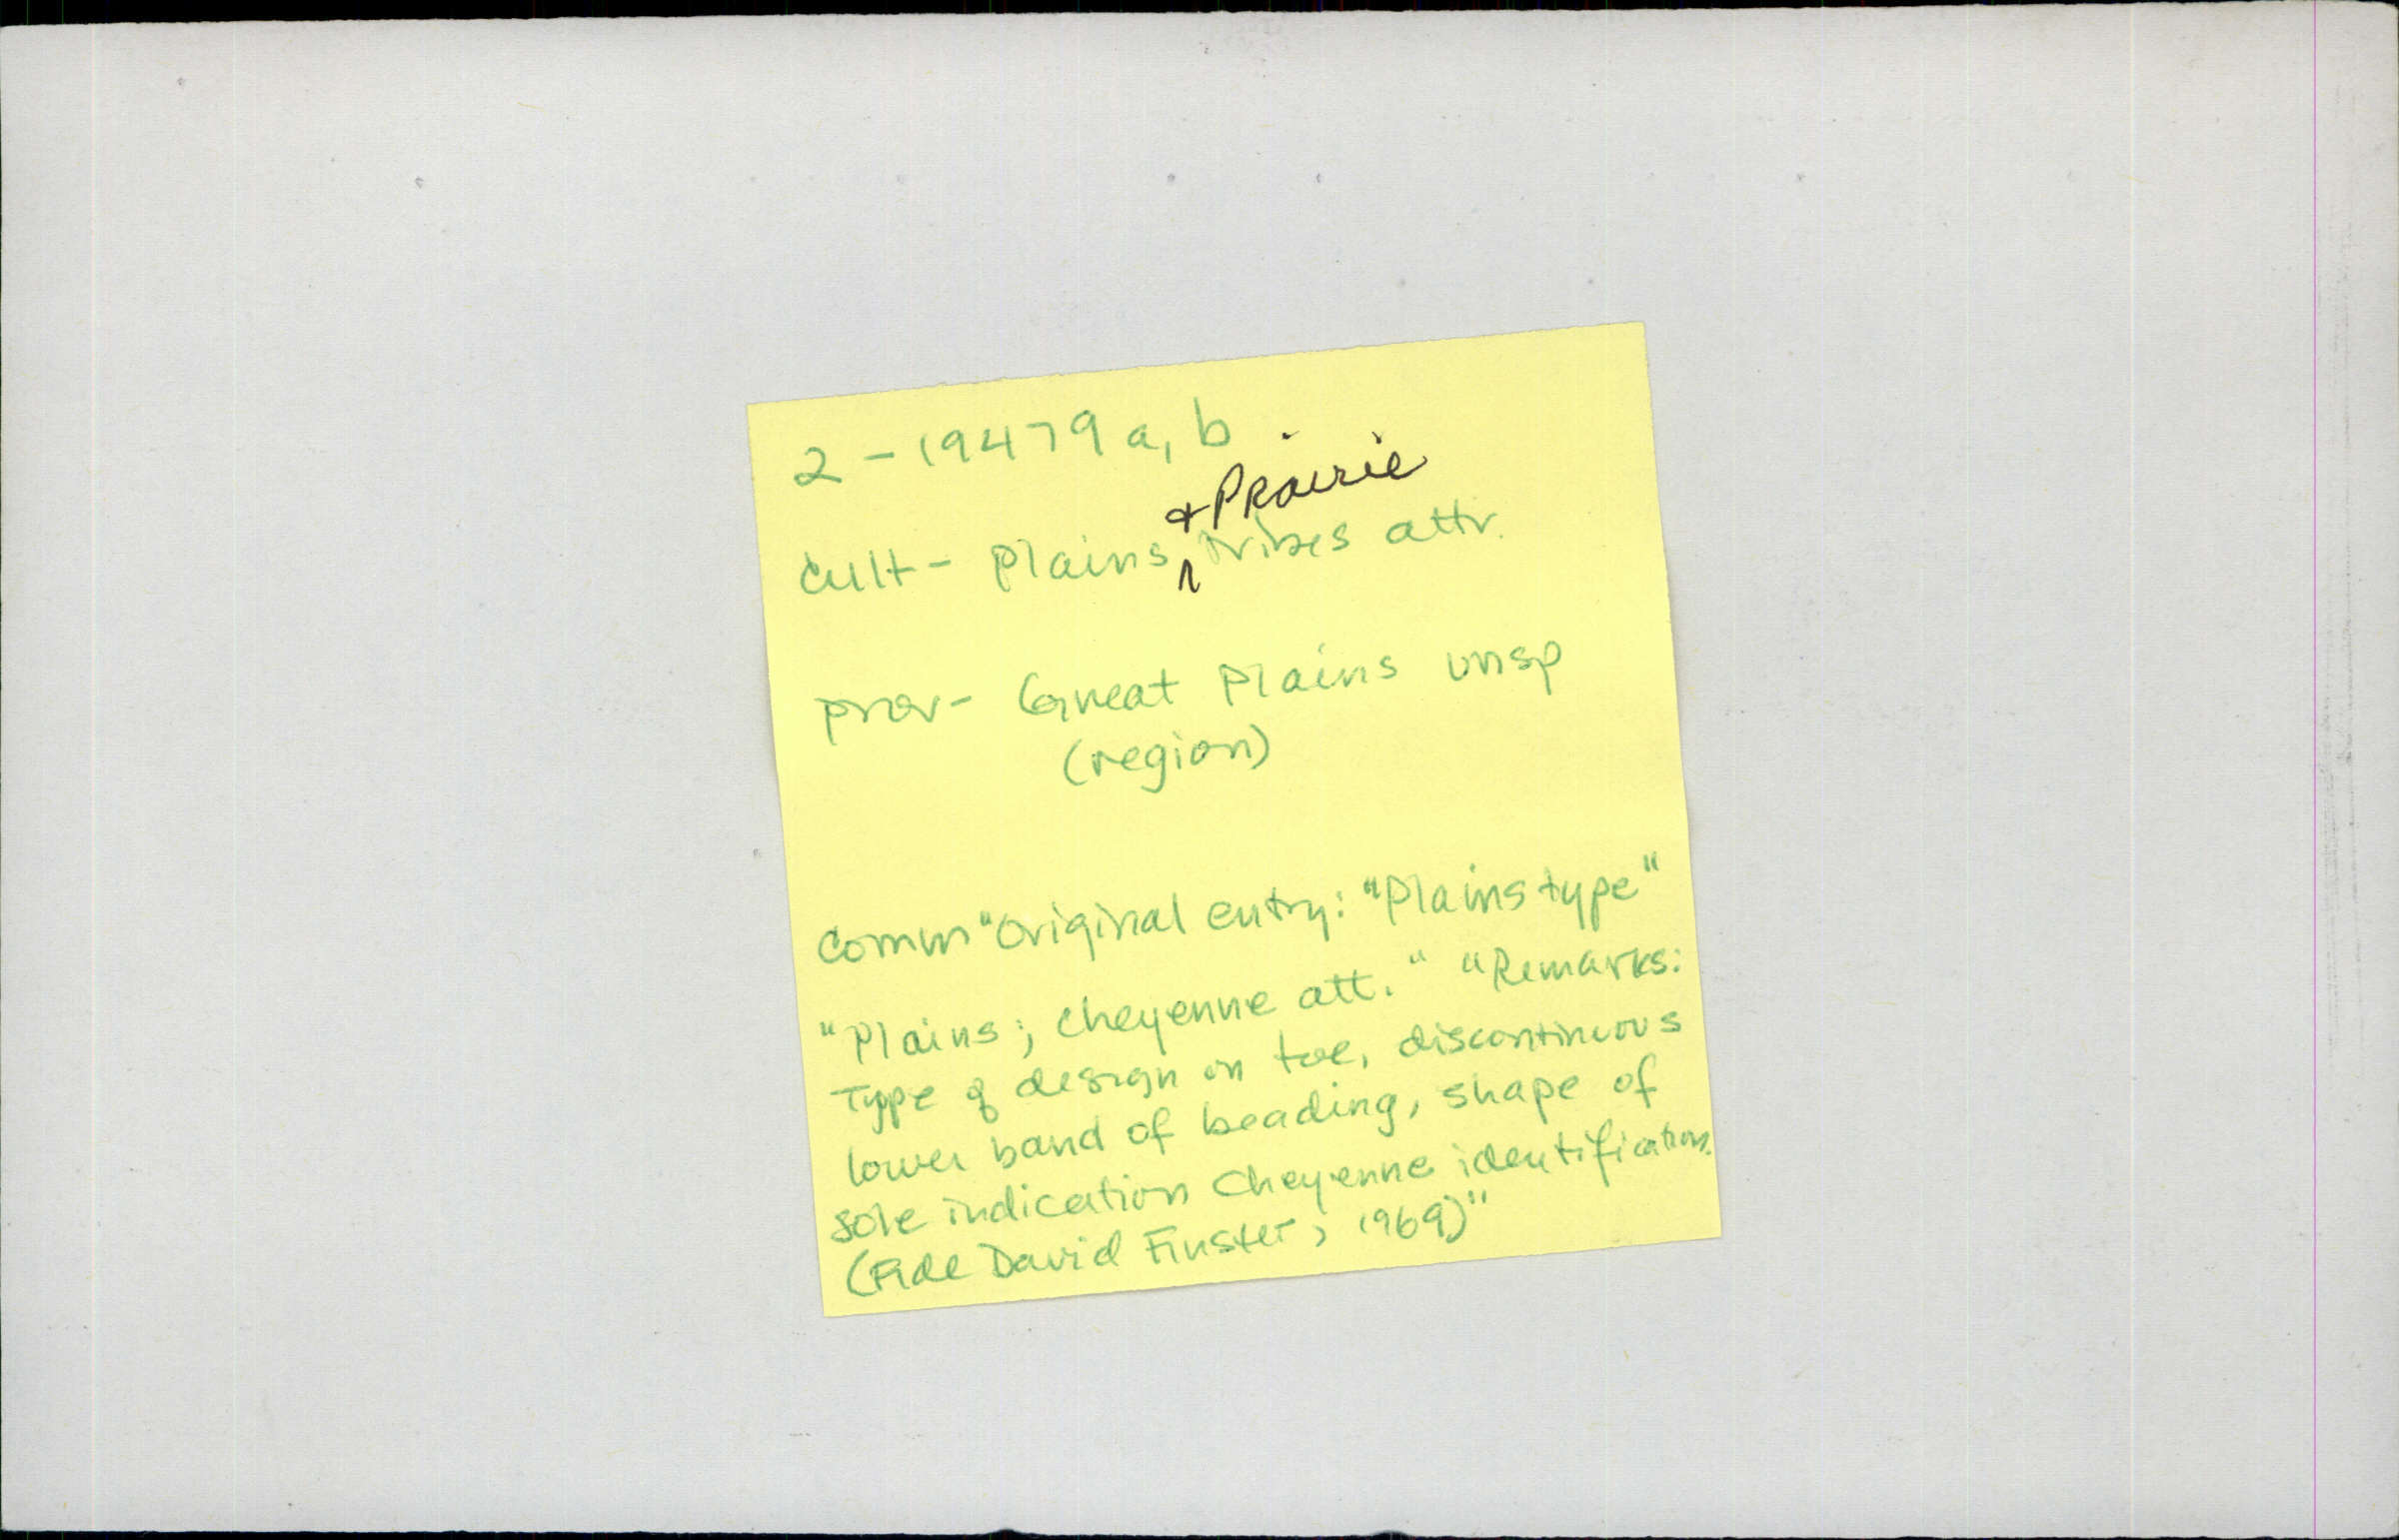 2-19479 a, b
Cult- Plains & Prairie tribes attr.
prov- Great Plains unsp
(region)
Comm "Original entry: "Plains type"
"Plains; Cheyenne att." "Remarks:
Type of design on toe, discontinuous
lower band of beading, shape of
sole indication Cheyenne identification.
(Fide David Finster, 1969)"